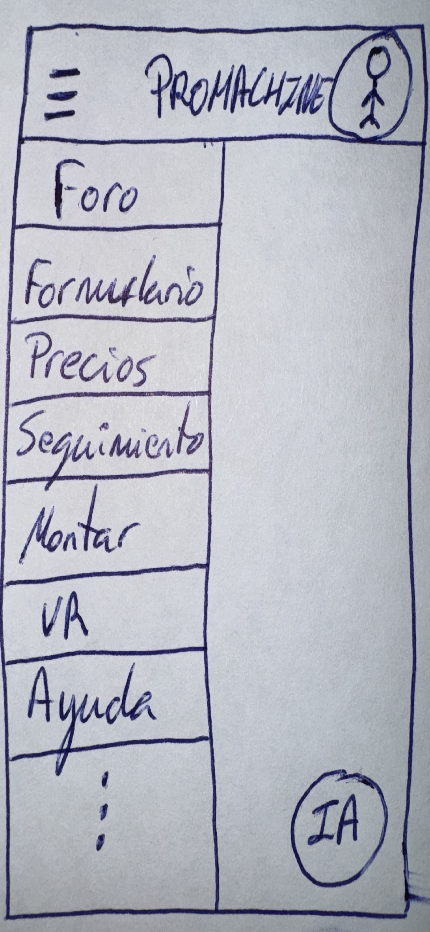 PROMACHINE
Foro
Formulario
Precios
Seguimiento
Montar
VR
Ayuda
IA